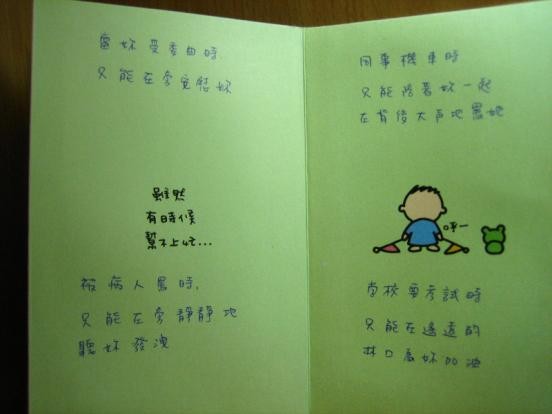 當妳受委曲時,
只能在旁安慰妳
雖然
有時候
幫不上忙...
被病人罵時,
只能在旁靜靜地
聽妳發洩
同事機車時
只能陪著妳一起
在背後大声地罵她
呼一
学校要考試時
只能在遙遠的
林口為妳加油